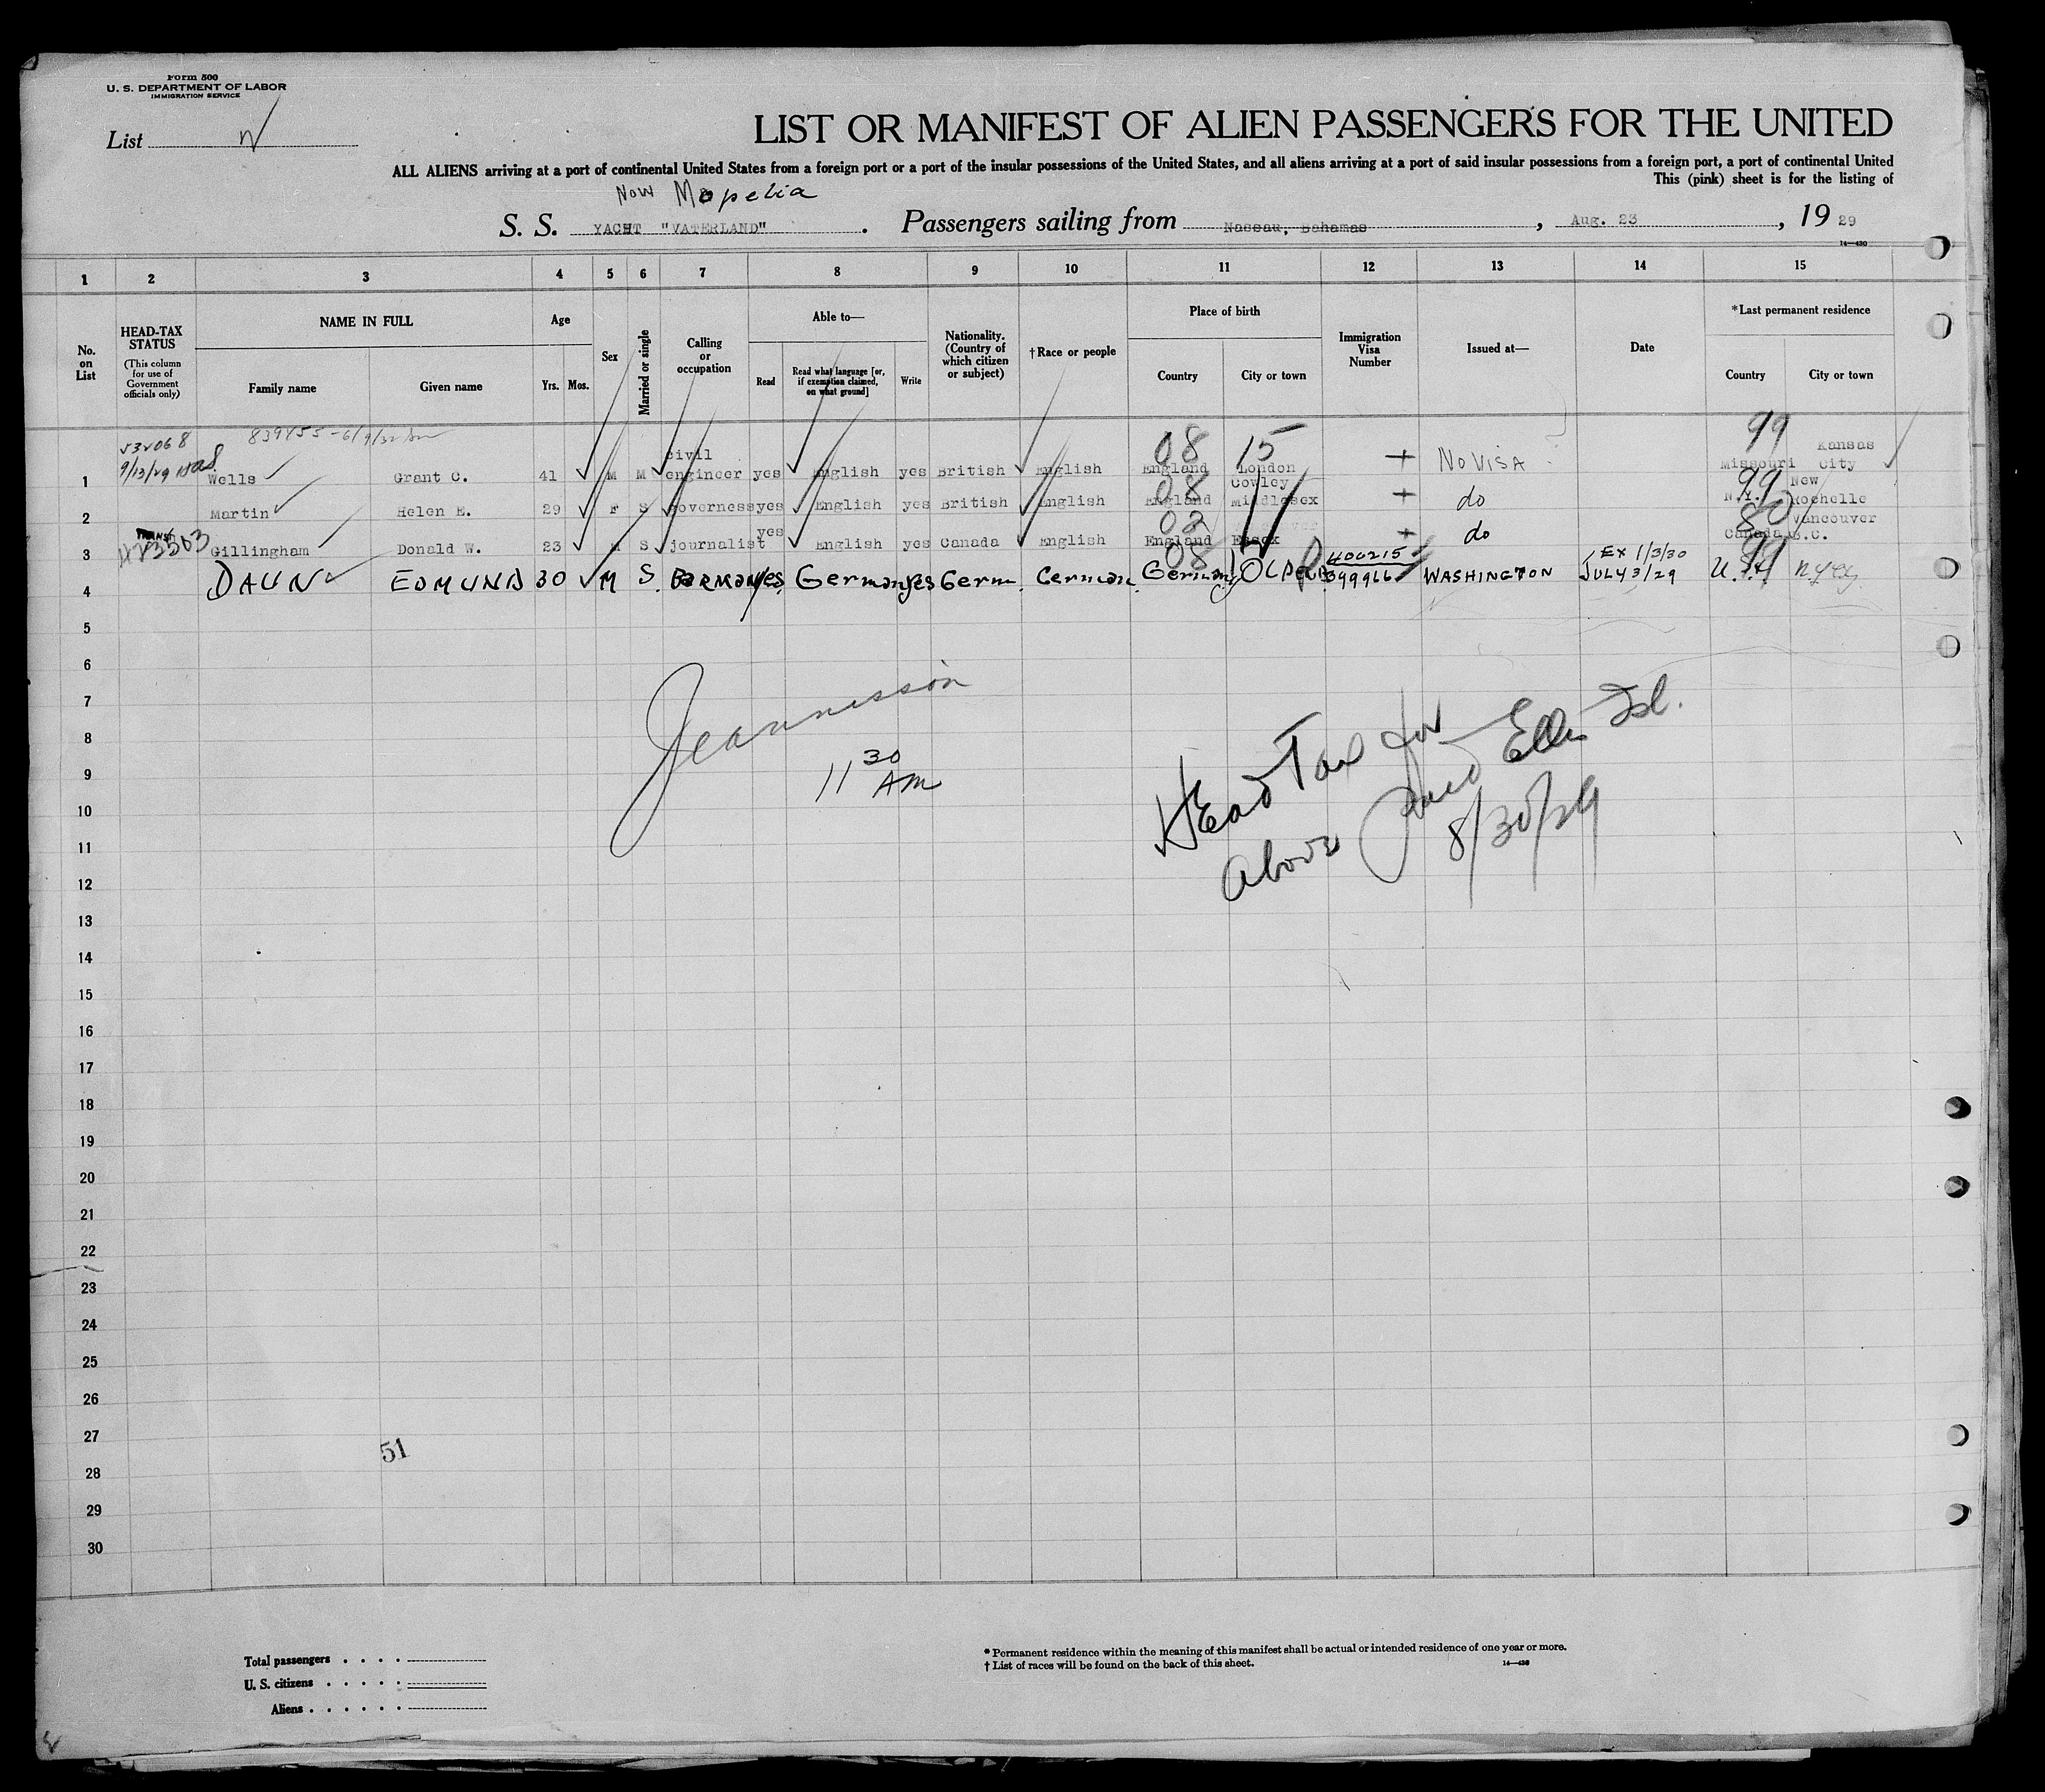 Form 500
U. S. DEPARTMENT OF LABOR
IMMIGRATION SERVICE
List
LIST OR MANIFEST OF ALIEN PASSENGERS FOR THE UNITED
ALL ALIENS arriving at a port of continental United States from a foreign port or a port of the insular possessions of the United States, and all aliens arriving at a port of said insular possessions from a foreign port, a port of continental United
This (pink) sheet is for the listing of
Now Mopelia
S. S. YACHT "VATERLAND" . Passengers sailing from Nassau, Bahamas, Aug. 23, 19 29
14—430
1 2 3 4 5 6 7 8 9 10 11 12 13 14 15
No. on List
HEAD-TAX STATUS
(This column for use of Government officials only)
NAME IN FULL
Family name Given name
Age
Yrs. Mos.
Sex
Married or single
Calling or occupation
Able to—
Read
Read what language [or, if exemption claimed, on what ground]
Write
Nationality. (Country of which citizen or subject)
†Race or people
Place of birth
Country City or town
Immigration Visa Number
Issued at—
Date
*Last permanent residence
Country City or town
839455-6/9/32
9/13/29
08 15 99
1 Wells Grant C. 41 M M civil engineer yes English yes British English England London + NO VISA Missouri Kansas City
08 99
2 Martin Helen E. 29 F S governess yes English yes British English England Cowley Middlesex + do N.Y. New Rochelle
TRANSIT
80
3 Gillingham Donald W. 23 M S journalist yes English yes Canada English England Essex + do Canada Vancouver B.C.
08 99
4 DAUN EDMUND 30 M S yes German yes Germ. German Germany 400215 399966 WASHINGTON EX 1/3/30 JULY 3/29 U.S. N.Y. City
5
6
7
8
9
10
11
12
13
14
15
16
17
18
19
20
21
22
23
24
25
26
27
28
29
30
11 30 AM
Head Tax for
above paid Ellis Isl.
8/30/29
51
Total passengers . . . .
U. S. citizens . . . . .
Aliens . . . . . .
* Permanent residence within the meaning of this manifest shall be actual or intended residence of one year or more.
† List of races will be found on the back of this sheet.